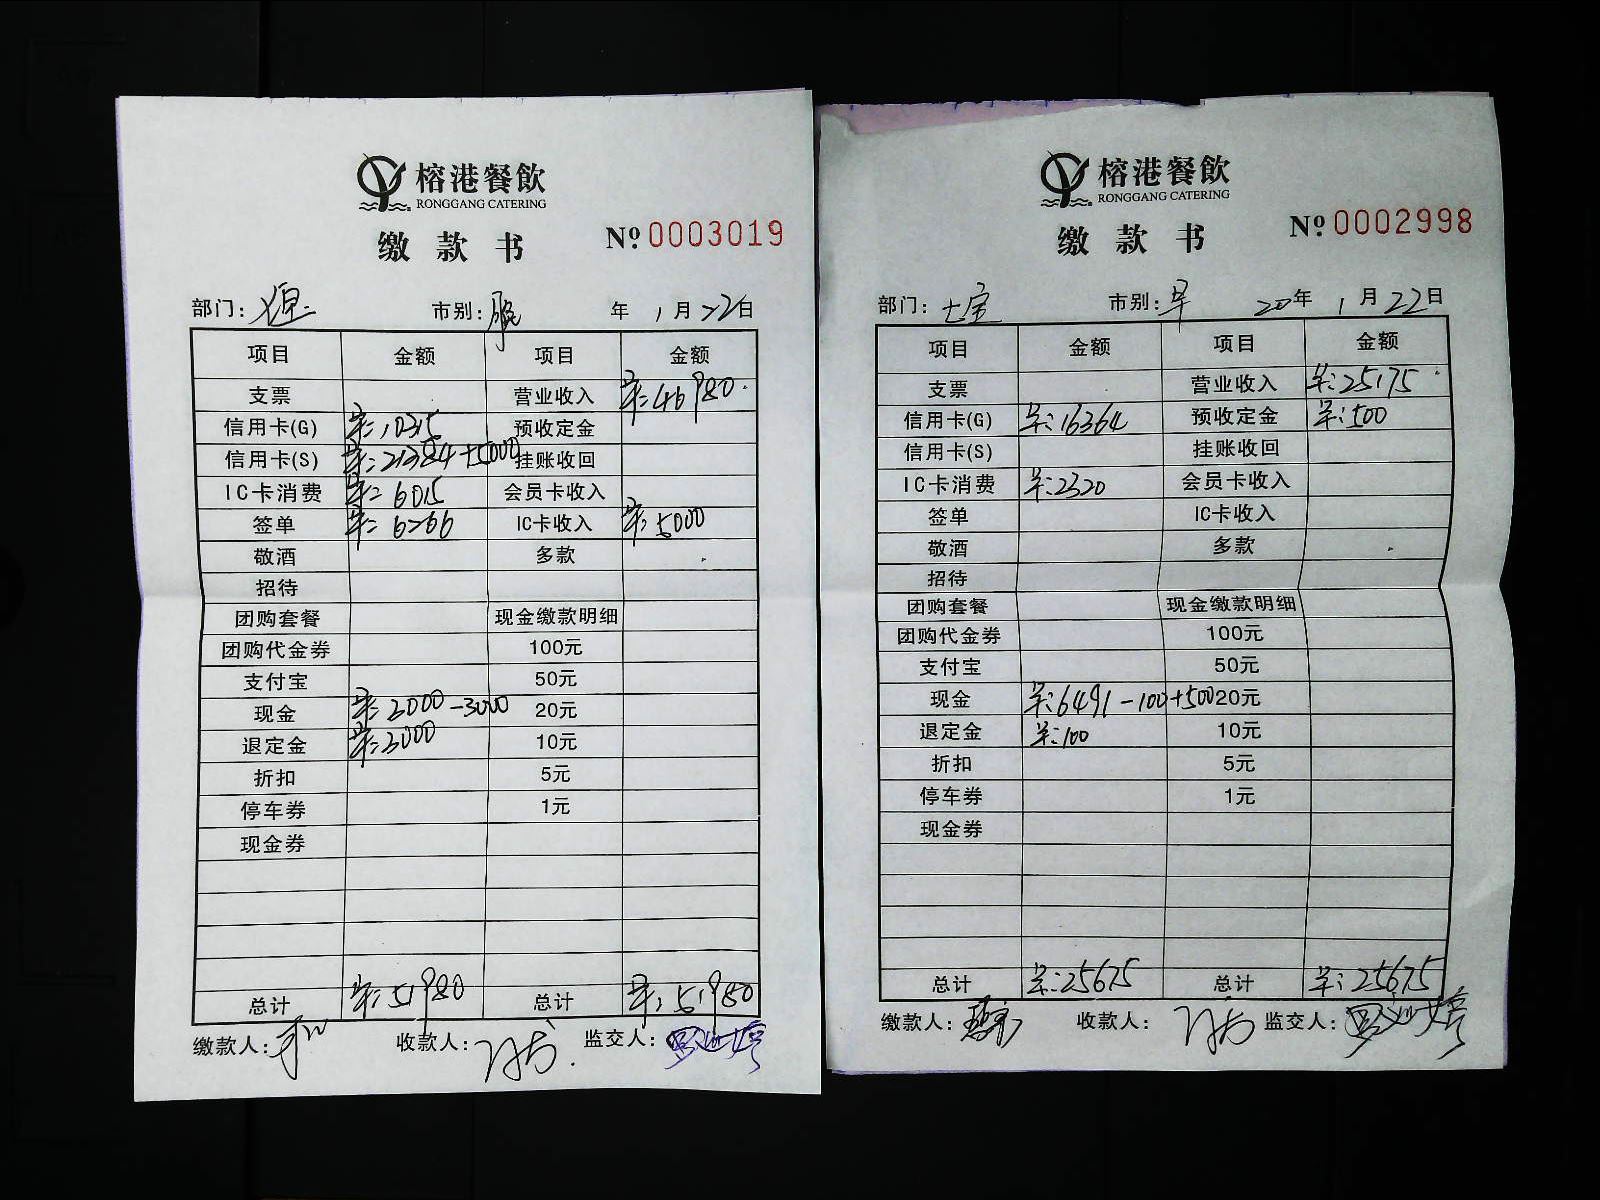 榕港餐飲
RONGGANG CATERING
缴款书
№ 0003019
部门: 市别: 年 1月22日
项目 金额 项目 金额
支票 营业收入 羊:46980.
信用卡(G) 羊:10315 预收定金
信用卡(S) 羊:21384+5000 挂账收回
IC卡消费 羊:6015 会员卡收入
签单 羊:6266 IC卡收入 羊:5000
敬酒 多款
招待
团购套餐 现金缴款明细
团购代金券 100元
支付宝 50元
现金 羊:3000-3000 20元
退定金 羊:3000 10元
折扣 5元
停车券 1元
现金券
总计 羊:51980 总计 羊:51980
缴款人: 收款人: 监交人:
榕港餐飲
RONGGANG CATERING
缴款书
№ 0002998
部门: 七宝 市别: 早 20年 1月22日
项目 金额 项目 金额
支票 营业收入 羊:25175
信用卡(G) 羊:16364 预收定金 羊:500
信用卡(S) 挂账收回
IC卡消费 羊:2320 会员卡收入
签单 IC卡收入
敬酒 多款
招待
团购套餐 现金缴款明细
团购代金券 100元
支付宝 50元
现金 羊:6491-100+500 20元
退定金 羊:100 10元
折扣 5元
停车券 1元
现金券
总计 羊:25675 总计 羊:25675
缴款人: 收款人: 监交人: